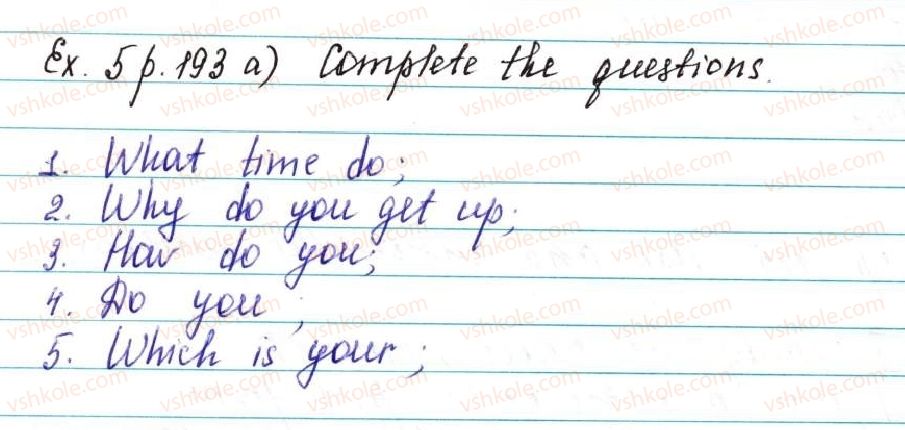 Ex. 5 p. 193 a) Complete the questions.
1. What time do;
2. Why do you get up;
3. How do you;
4. Do you ;
5. Which is your ;